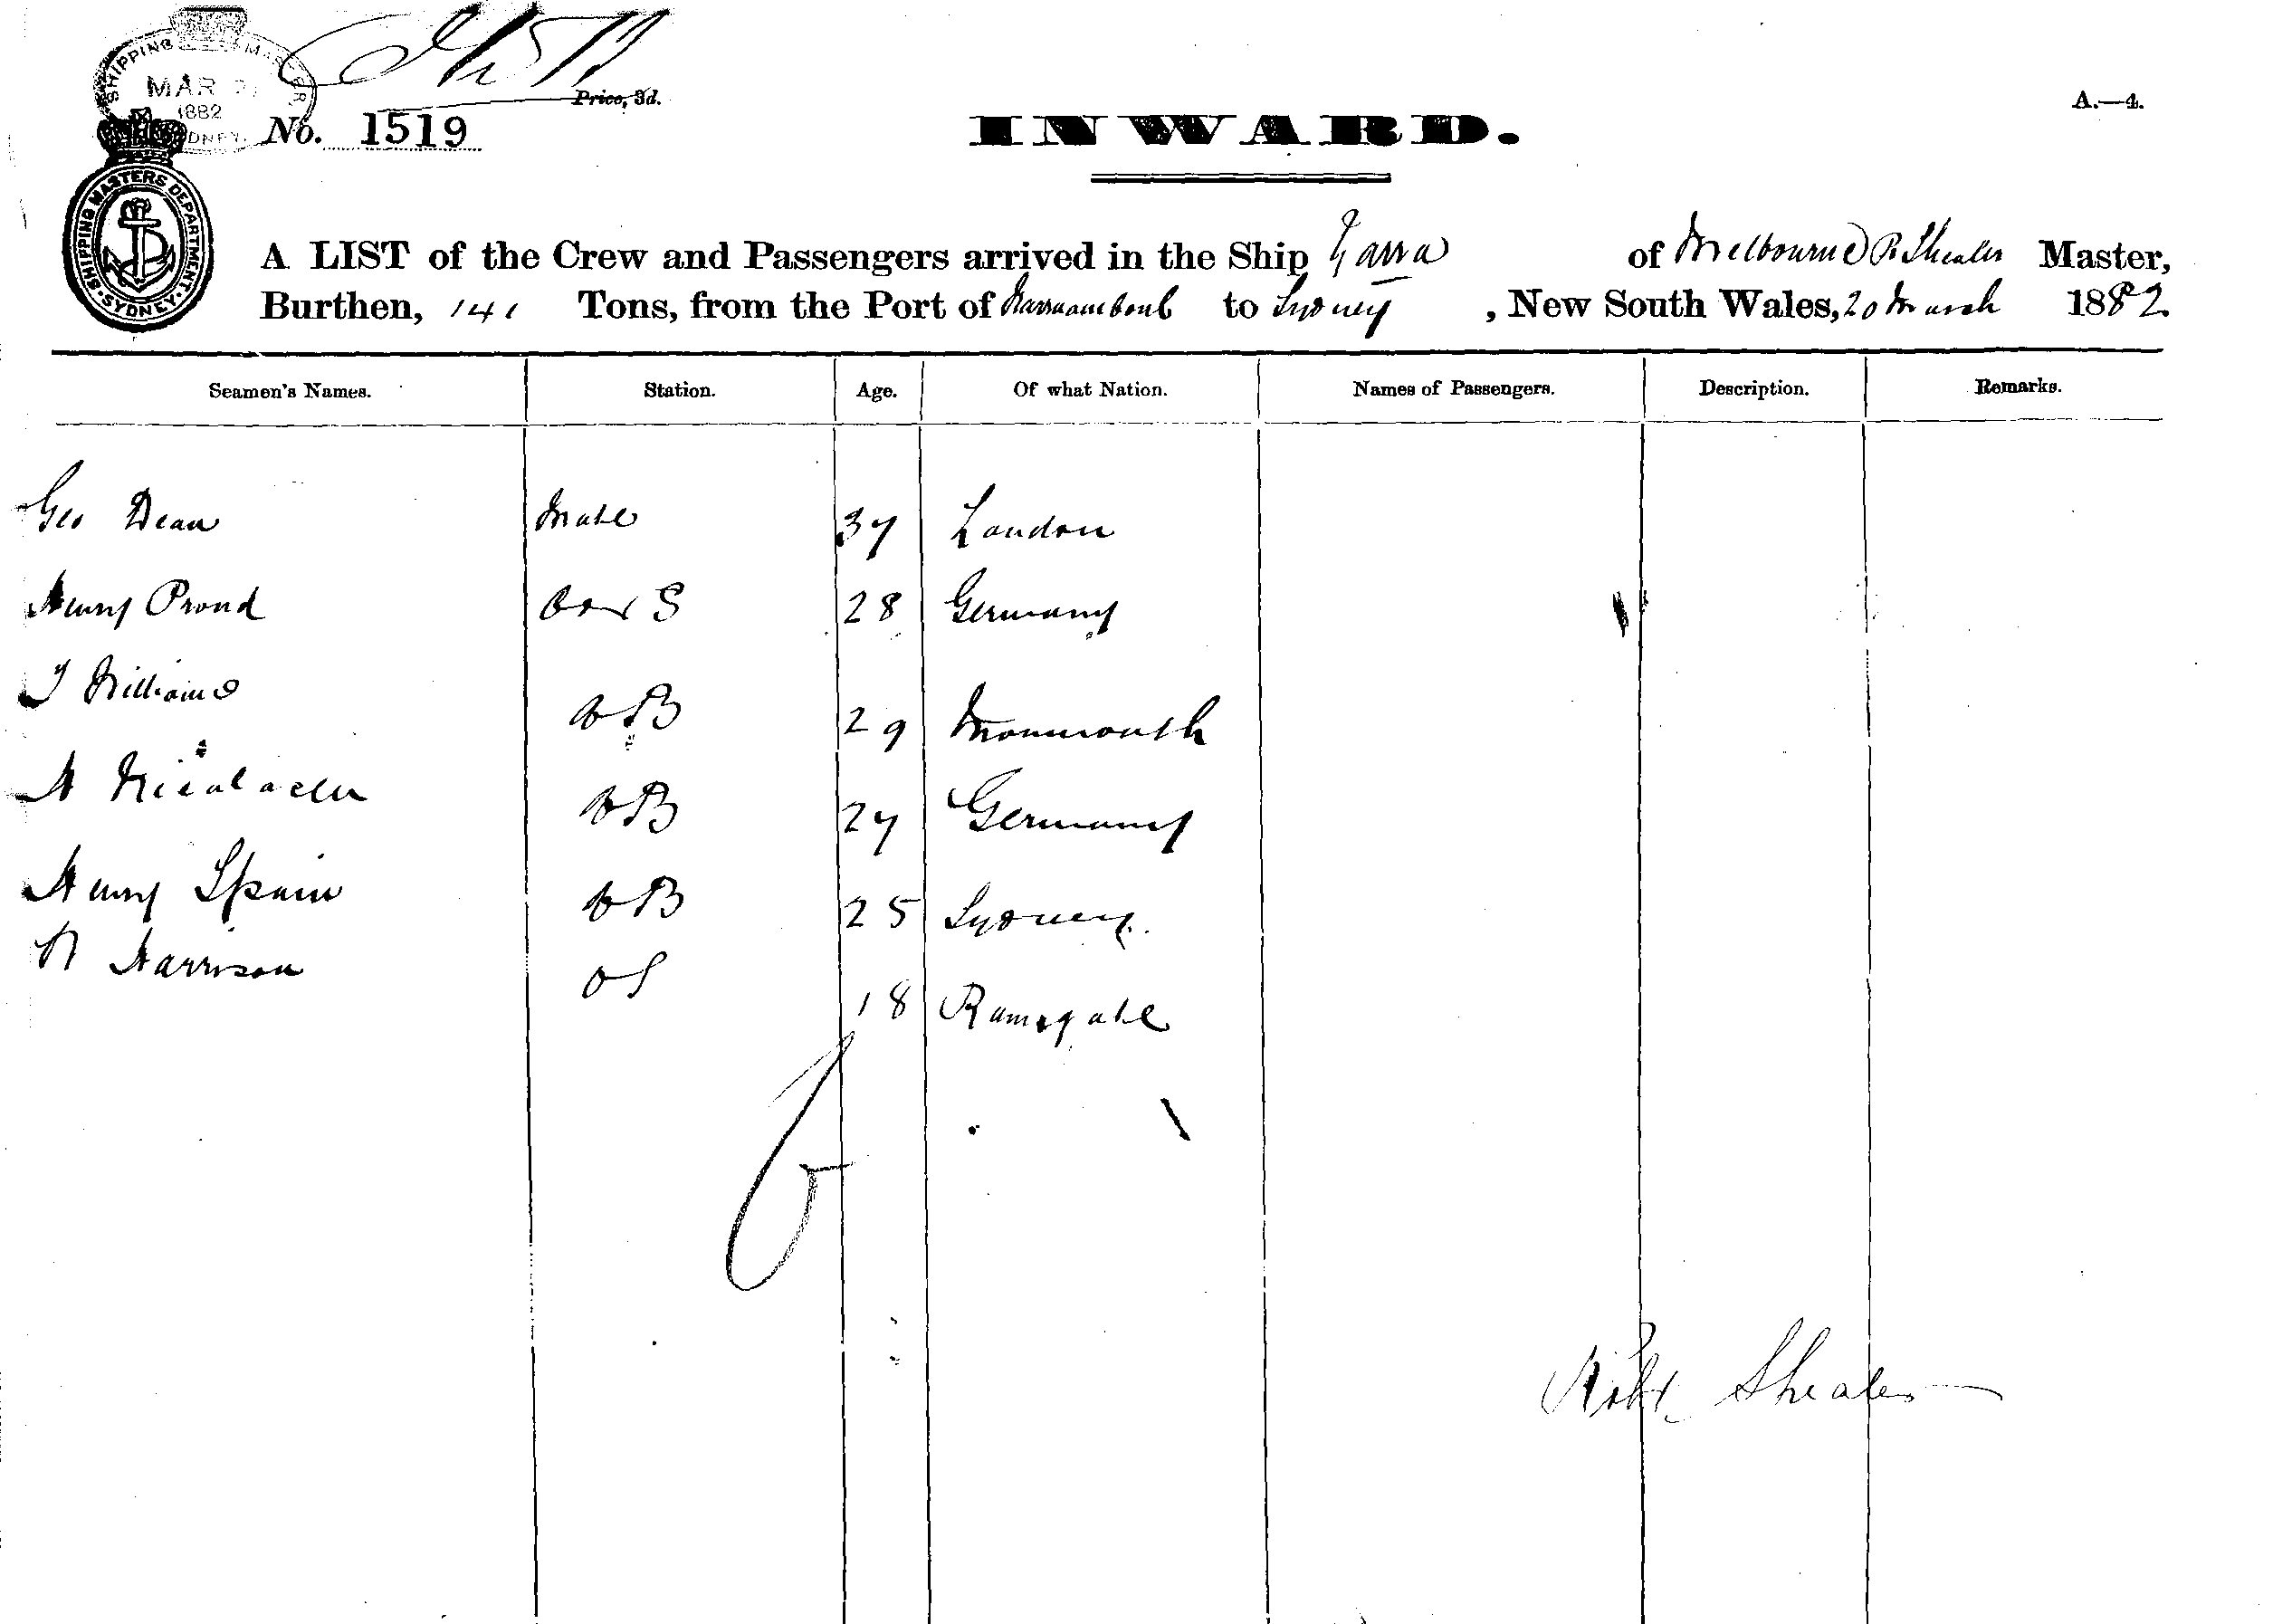 SHIPPING MASTER
MAR
1882
SYDNEY
Price, 3d.
A.—4.
No. 1519
INWARD.
SHIPPING MASTERS DEPARTMENT. SYDNEY.
A LIST of the Crew and Passengers arrived in the Ship Yarra of Melbourne R Sheales Master,
Burthen, 141 Tons, from the Port of Warrnambool to Sydney, New South Wales, 20 March 1882
Seamen's Names. Station. Age. Of what Nation. Names of Passengers. Description. Remarks.
Geo Dean Mate 37 London
Henry Proud S 28 Germany
J Williams AB 29 Monmouth
A AB 27 Germany
Henry Spain AB 25 Sydney
Harrison OS 18 Ramsgate
6
Robt Sheales